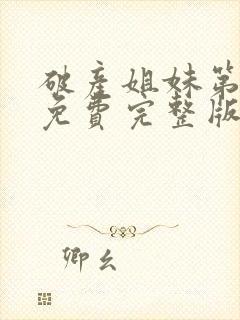 破产姐妹第
免费完整版
卿幺